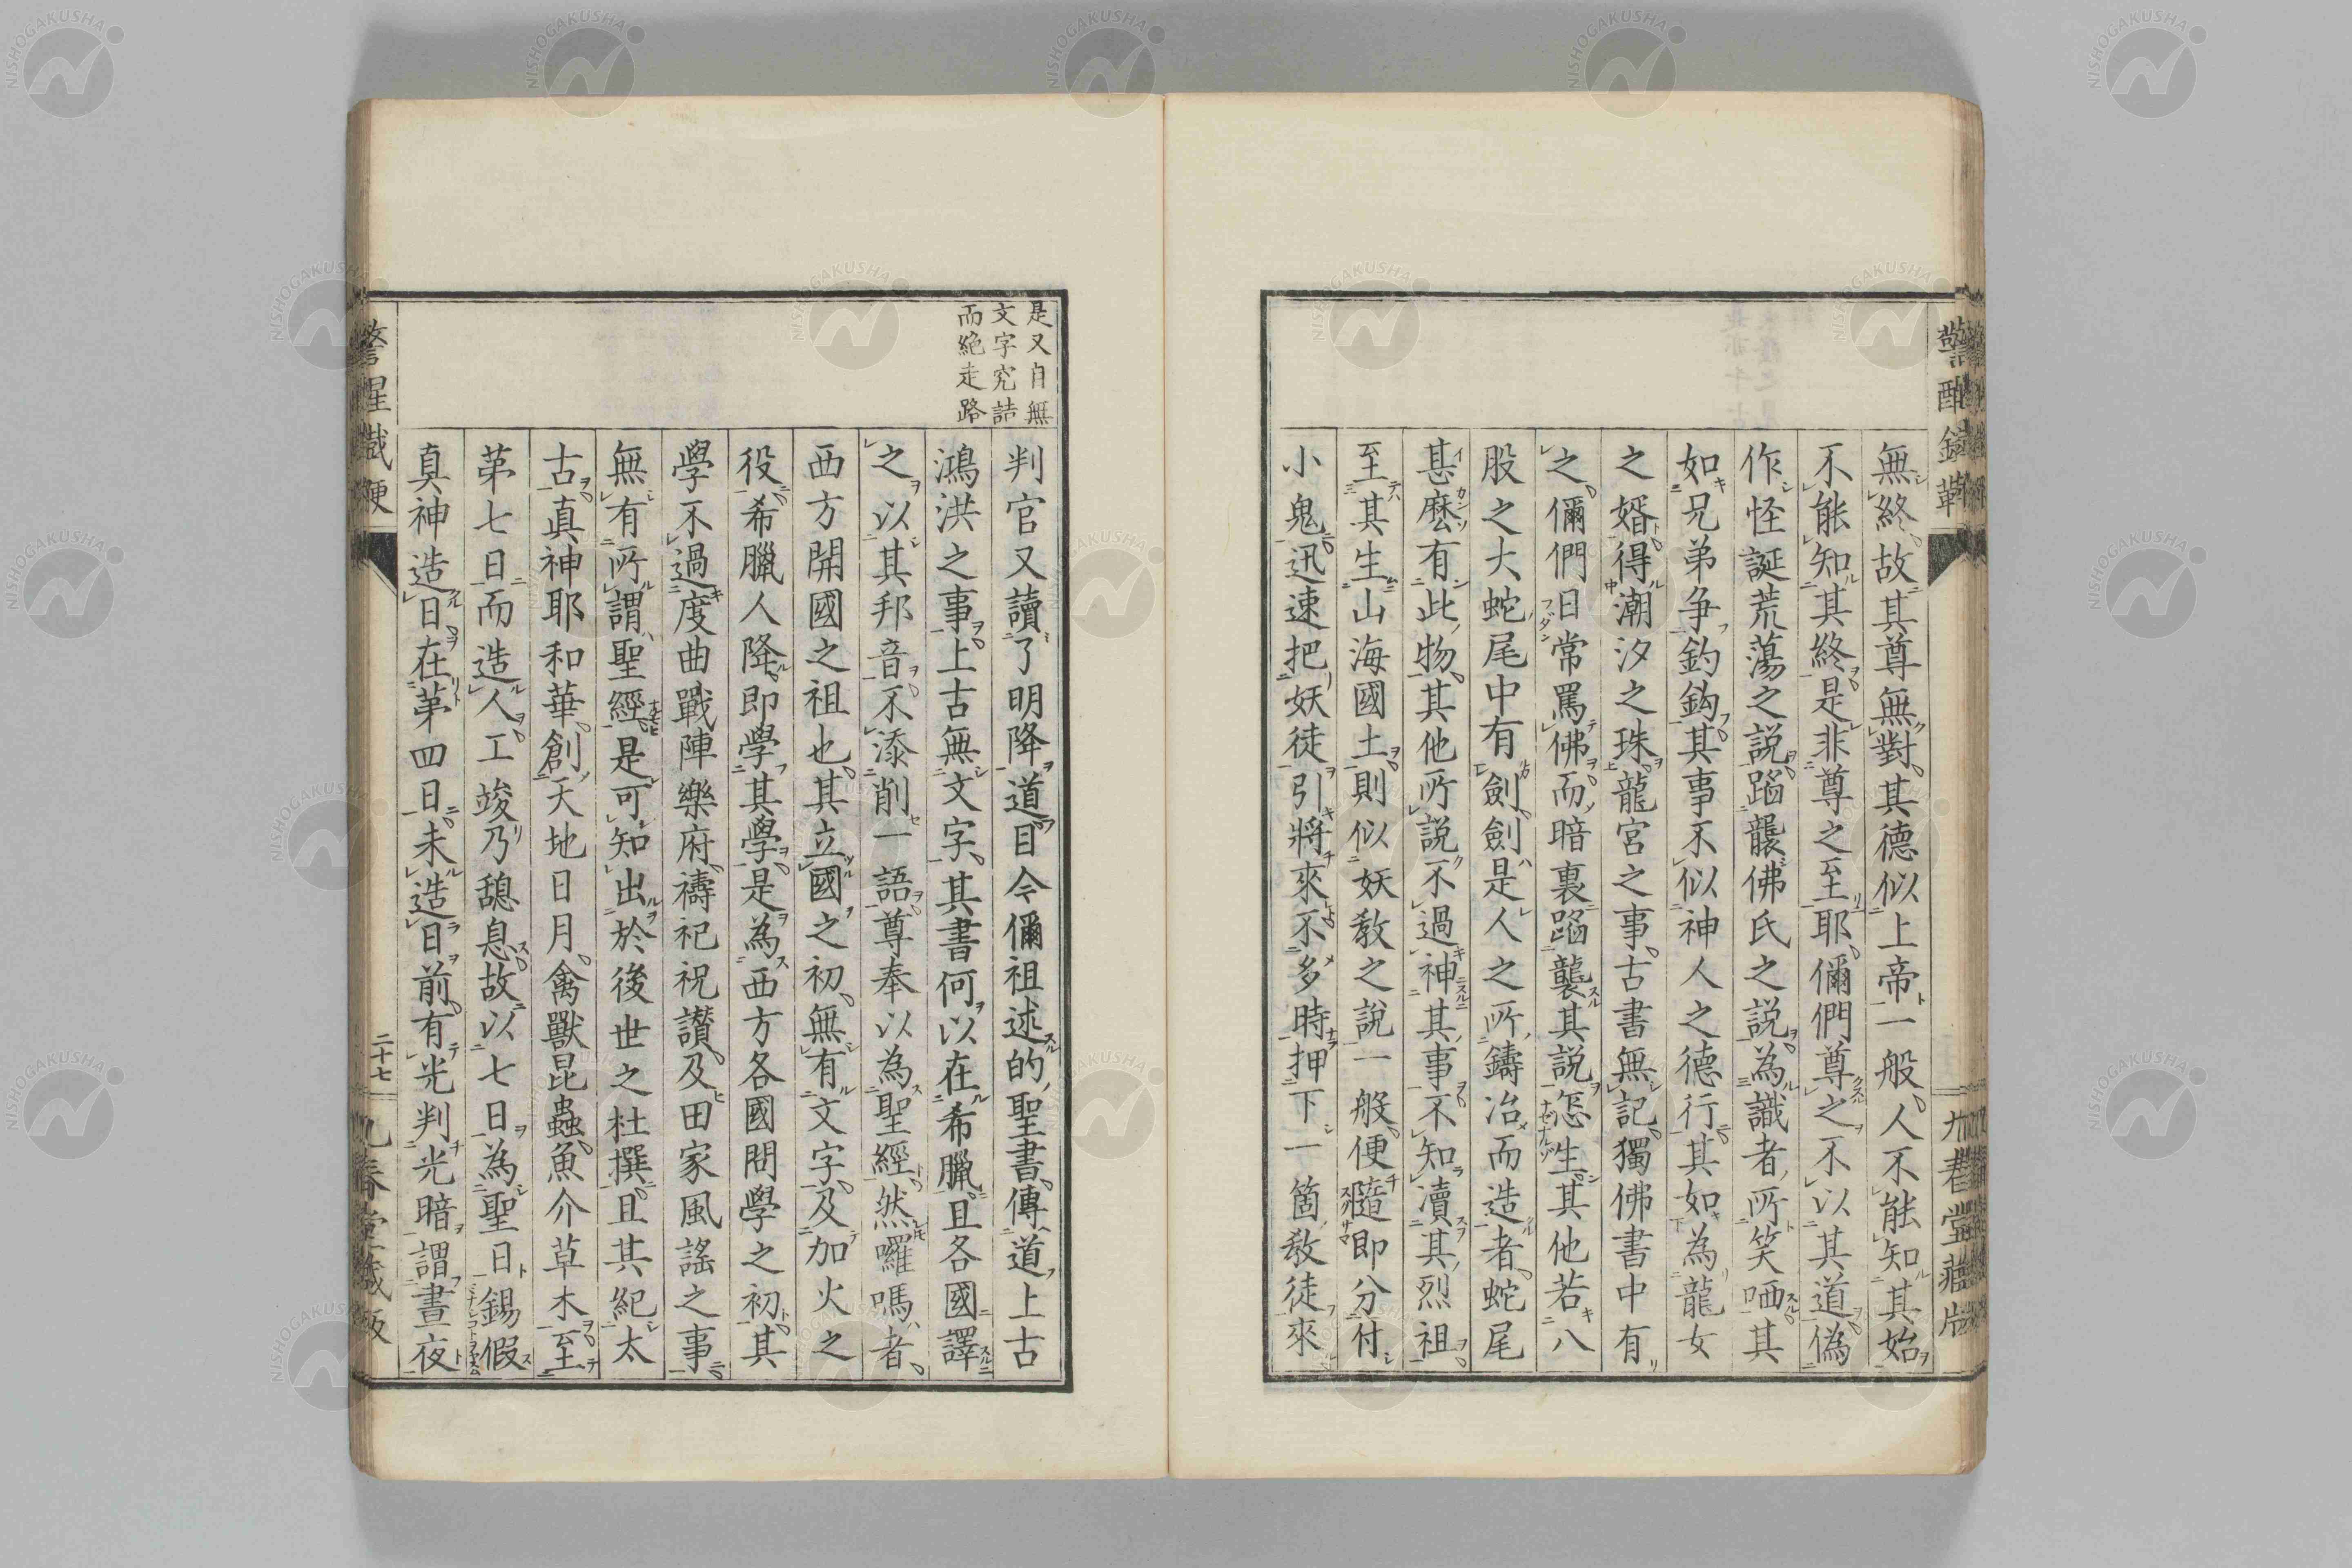 無終故其尊無對其德似上帝一般人不能知其始
不能知其終是非尊之至耶儞們尊之不以其道偽
作怪誕荒蕩之説蹈襲佛氏之説為識者所笑哂其
如兄弟争釣鈎其事不似神人之德行其如為龍女
之婿得潮汐之珠龍宮之事古書無記獨佛書中有
之儞們日常罵佛而暗裏蹈襲其説怎生其他若八
股之大蛇尾中有劍劍是人之所鑄冶而造者蛇尾
甚麽有此物其他所説不過神其事不知瀆其烈祖
至其生山海國土則似妖教之説一般便隨即分付
小鬼迅速把妖徒引將來不多時押下一箇教徒來
是又自無
文字究詰
而絶走路
判官又讀了明降道目今儞祖述的聖書傳道上古
鴻洪之事上古無文字其書何以在希臘且各國譯
之以其邦音不添削一語尊奉以為聖經然囉嗎者
西方開國之祖也其立國之初無有文字及加火之
役希臘人降即學其學是為西方各國問學之初其
學不過度曲戰陣樂府禱祀祝讃及田家風謠之事
無有所謂聖經是可知出於後世之杜撰且其紀太
古真神耶和華創天地日月禽獸昆蟲魚介草木至
第七日而造人工竣乃憩息故以七日為聖日錫假
真神造日在第四日未造日前有光判光暗謂晝夜
二十七
NISHOGAKUSHA